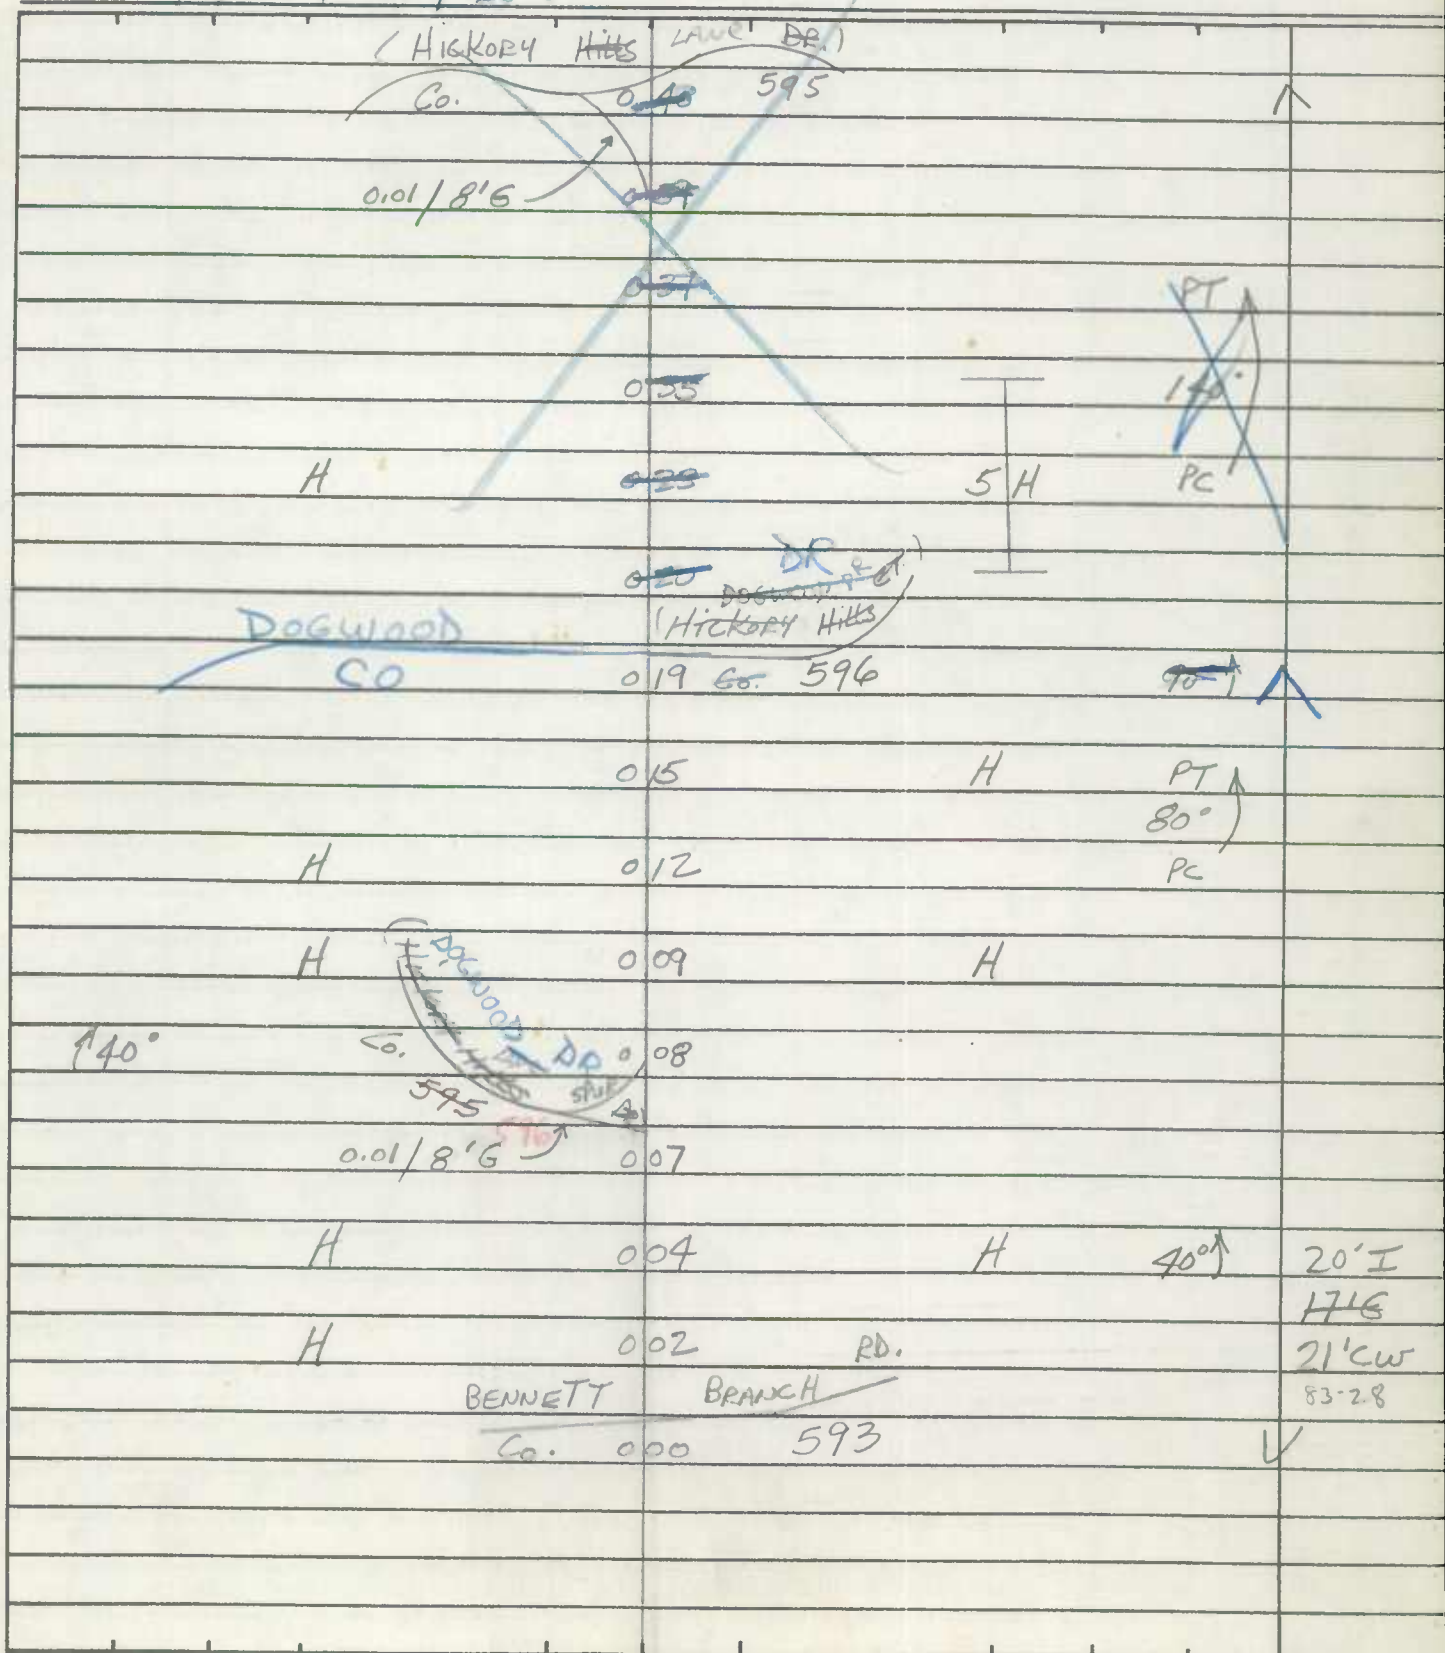 ( HICKORY Hills LANE DR.)
Co. 0 40 595
0.01/8'G
0 37 PT
0 35 140°
H 0 29 5 H PC
0 20 DR
DOGWOOD (HICKORY Hills
CO 0 19 Co. 596 90°
0 15 H PT
80°
H 0 12 PC
H DOGWOOD DR 0 09 H
40° Co. SPUR 0 08
595
596
0.01/8'G 0 07
H 0 04 H 40° 20'I
17'G
H 0 02 RD. 21'CW
BENNETT BRANCH 83-28
Co. 0 00 593